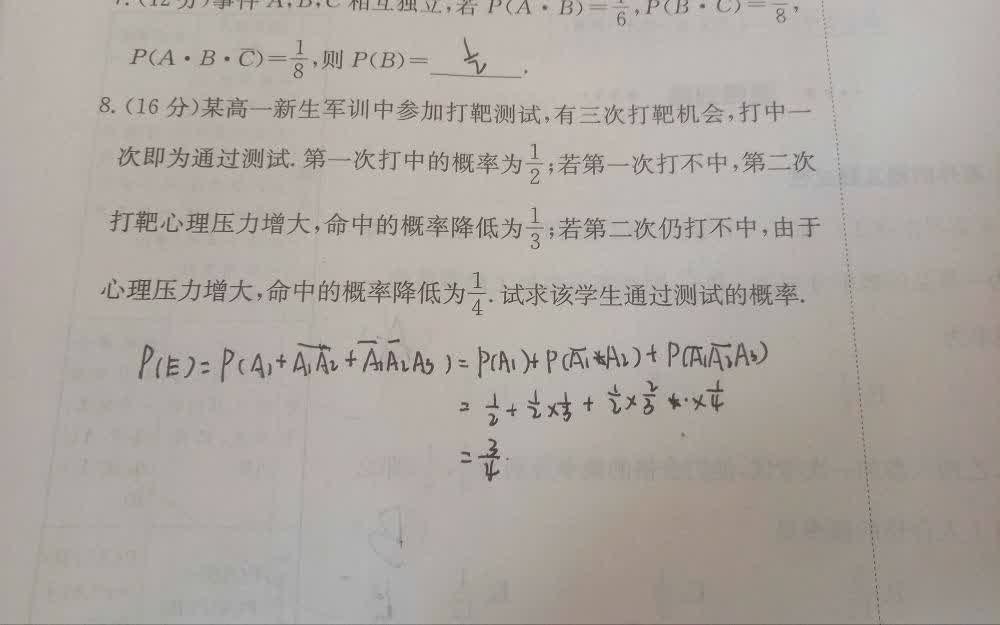 7.(12分)事件A,B,C相互独立,若P(A·B)=1/6,P(B·C)=1/8,
P(A·B·C̅)=1/8,则P(B)=1/2.
8.(16分)某高一新生军训中参加打靶测试,有三次打靶机会,打中一
次即为通过测试.第一次打中的概率为1/2;若第一次打不中,第二次
打靶心理压力增大,命中的概率降低为1/3;若第二次仍打不中,由于
心理压力增大,命中的概率降低为1/4.试求该学生通过测试的概率.
P(E)=P(A₁+A̅₁A₂+A̅₁A̅₂A₃)=P(A₁)+P(A̅₁A₂)+P(A̅₁A̅₂A₃)
=1/2+1/2×1/3+1/2×2/3×1/4
=3/4.